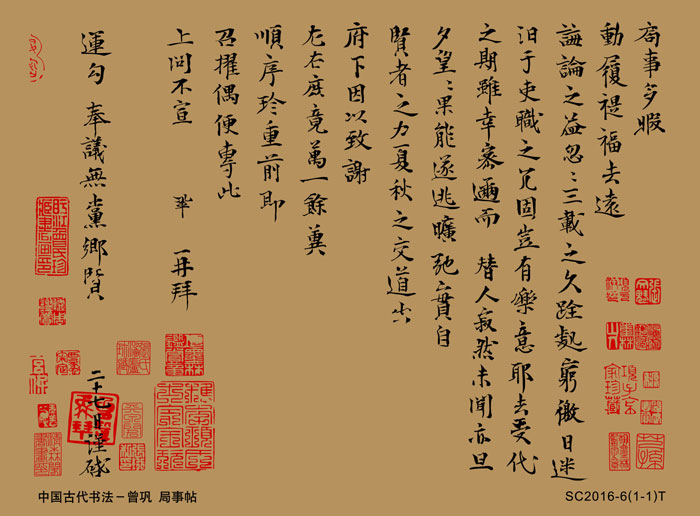 局事多暇
動履禔福去遠
誨論之益忽〻三載之久跧處窮徼日迷
汩于吏職之冗固豈有樂意耶去受代
之期雖幸密邇而 替人寂然未聞亦旦
夕望〻果能遂逃曠弛實自
賢者之力夏秋之交道出
府下因以致謝
左右庶竟萬一餘冀
順序珍重前即
召擢偶便專此
上問不宣 鞏 再拜
運勾 奉議無黨鄉賢
二十七日謹啟
中国古代书法－曾巩 局事帖
SC2016-6(1-1)T